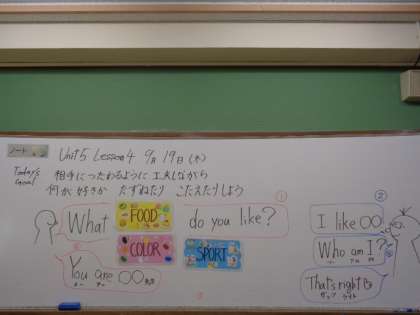 ノート Unit 5 Lesson 4 9月19日(木)
Today's Goal 相手につたわるように 工夫しながら
何が好きか たずねたり こたえたりしよう
①
②
What FOOD do you like?
I like 〇〇
COLOR
SPORT
Who am I?
フー アム アイ
You are 〇〇
ユー アー
That's right
ザッツ ライト